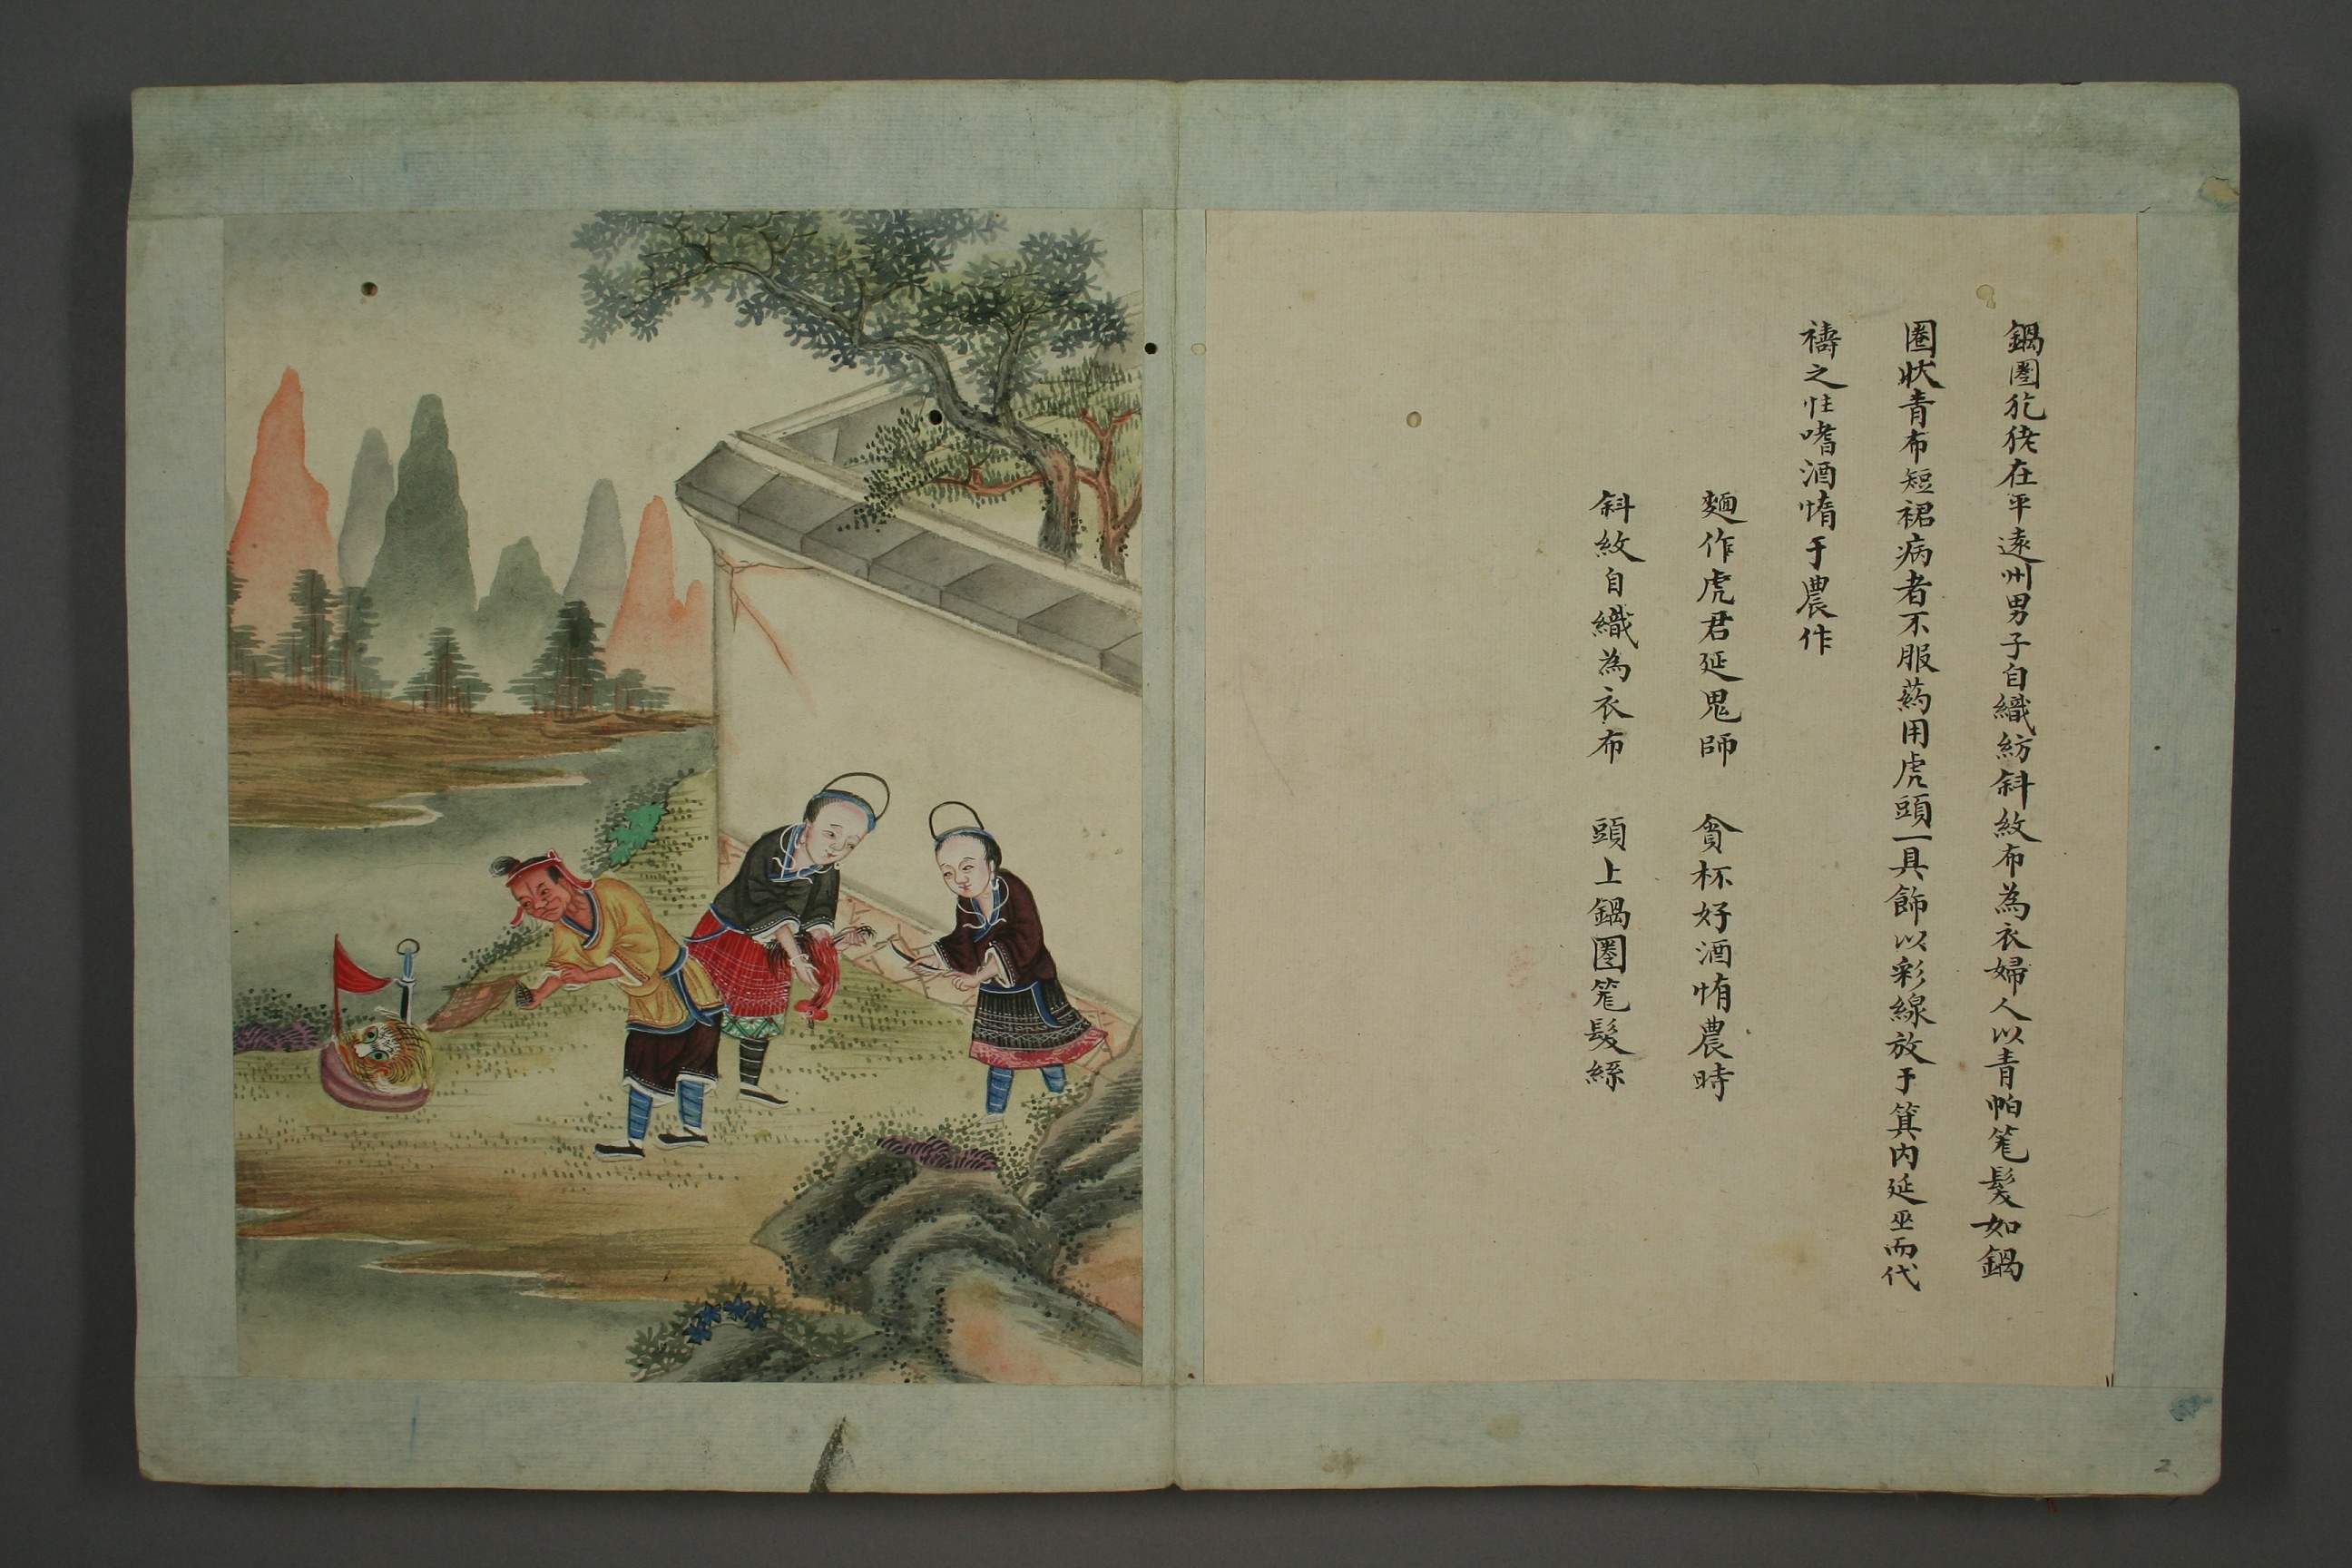 鍋圏犵狫在平遠州男子自織紡斜紋布為衣婦人以青帕笼髮如鍋
圏状青布短裙病者不服葯用虎頭一具飾以彩線放于箕内延巫而代
禱之性嗜酒惰于農作
麵作虎君延鬼師 貪杯好酒惰農時
斜紋自織為衣布 頭上鍋圏笼髮絲
2